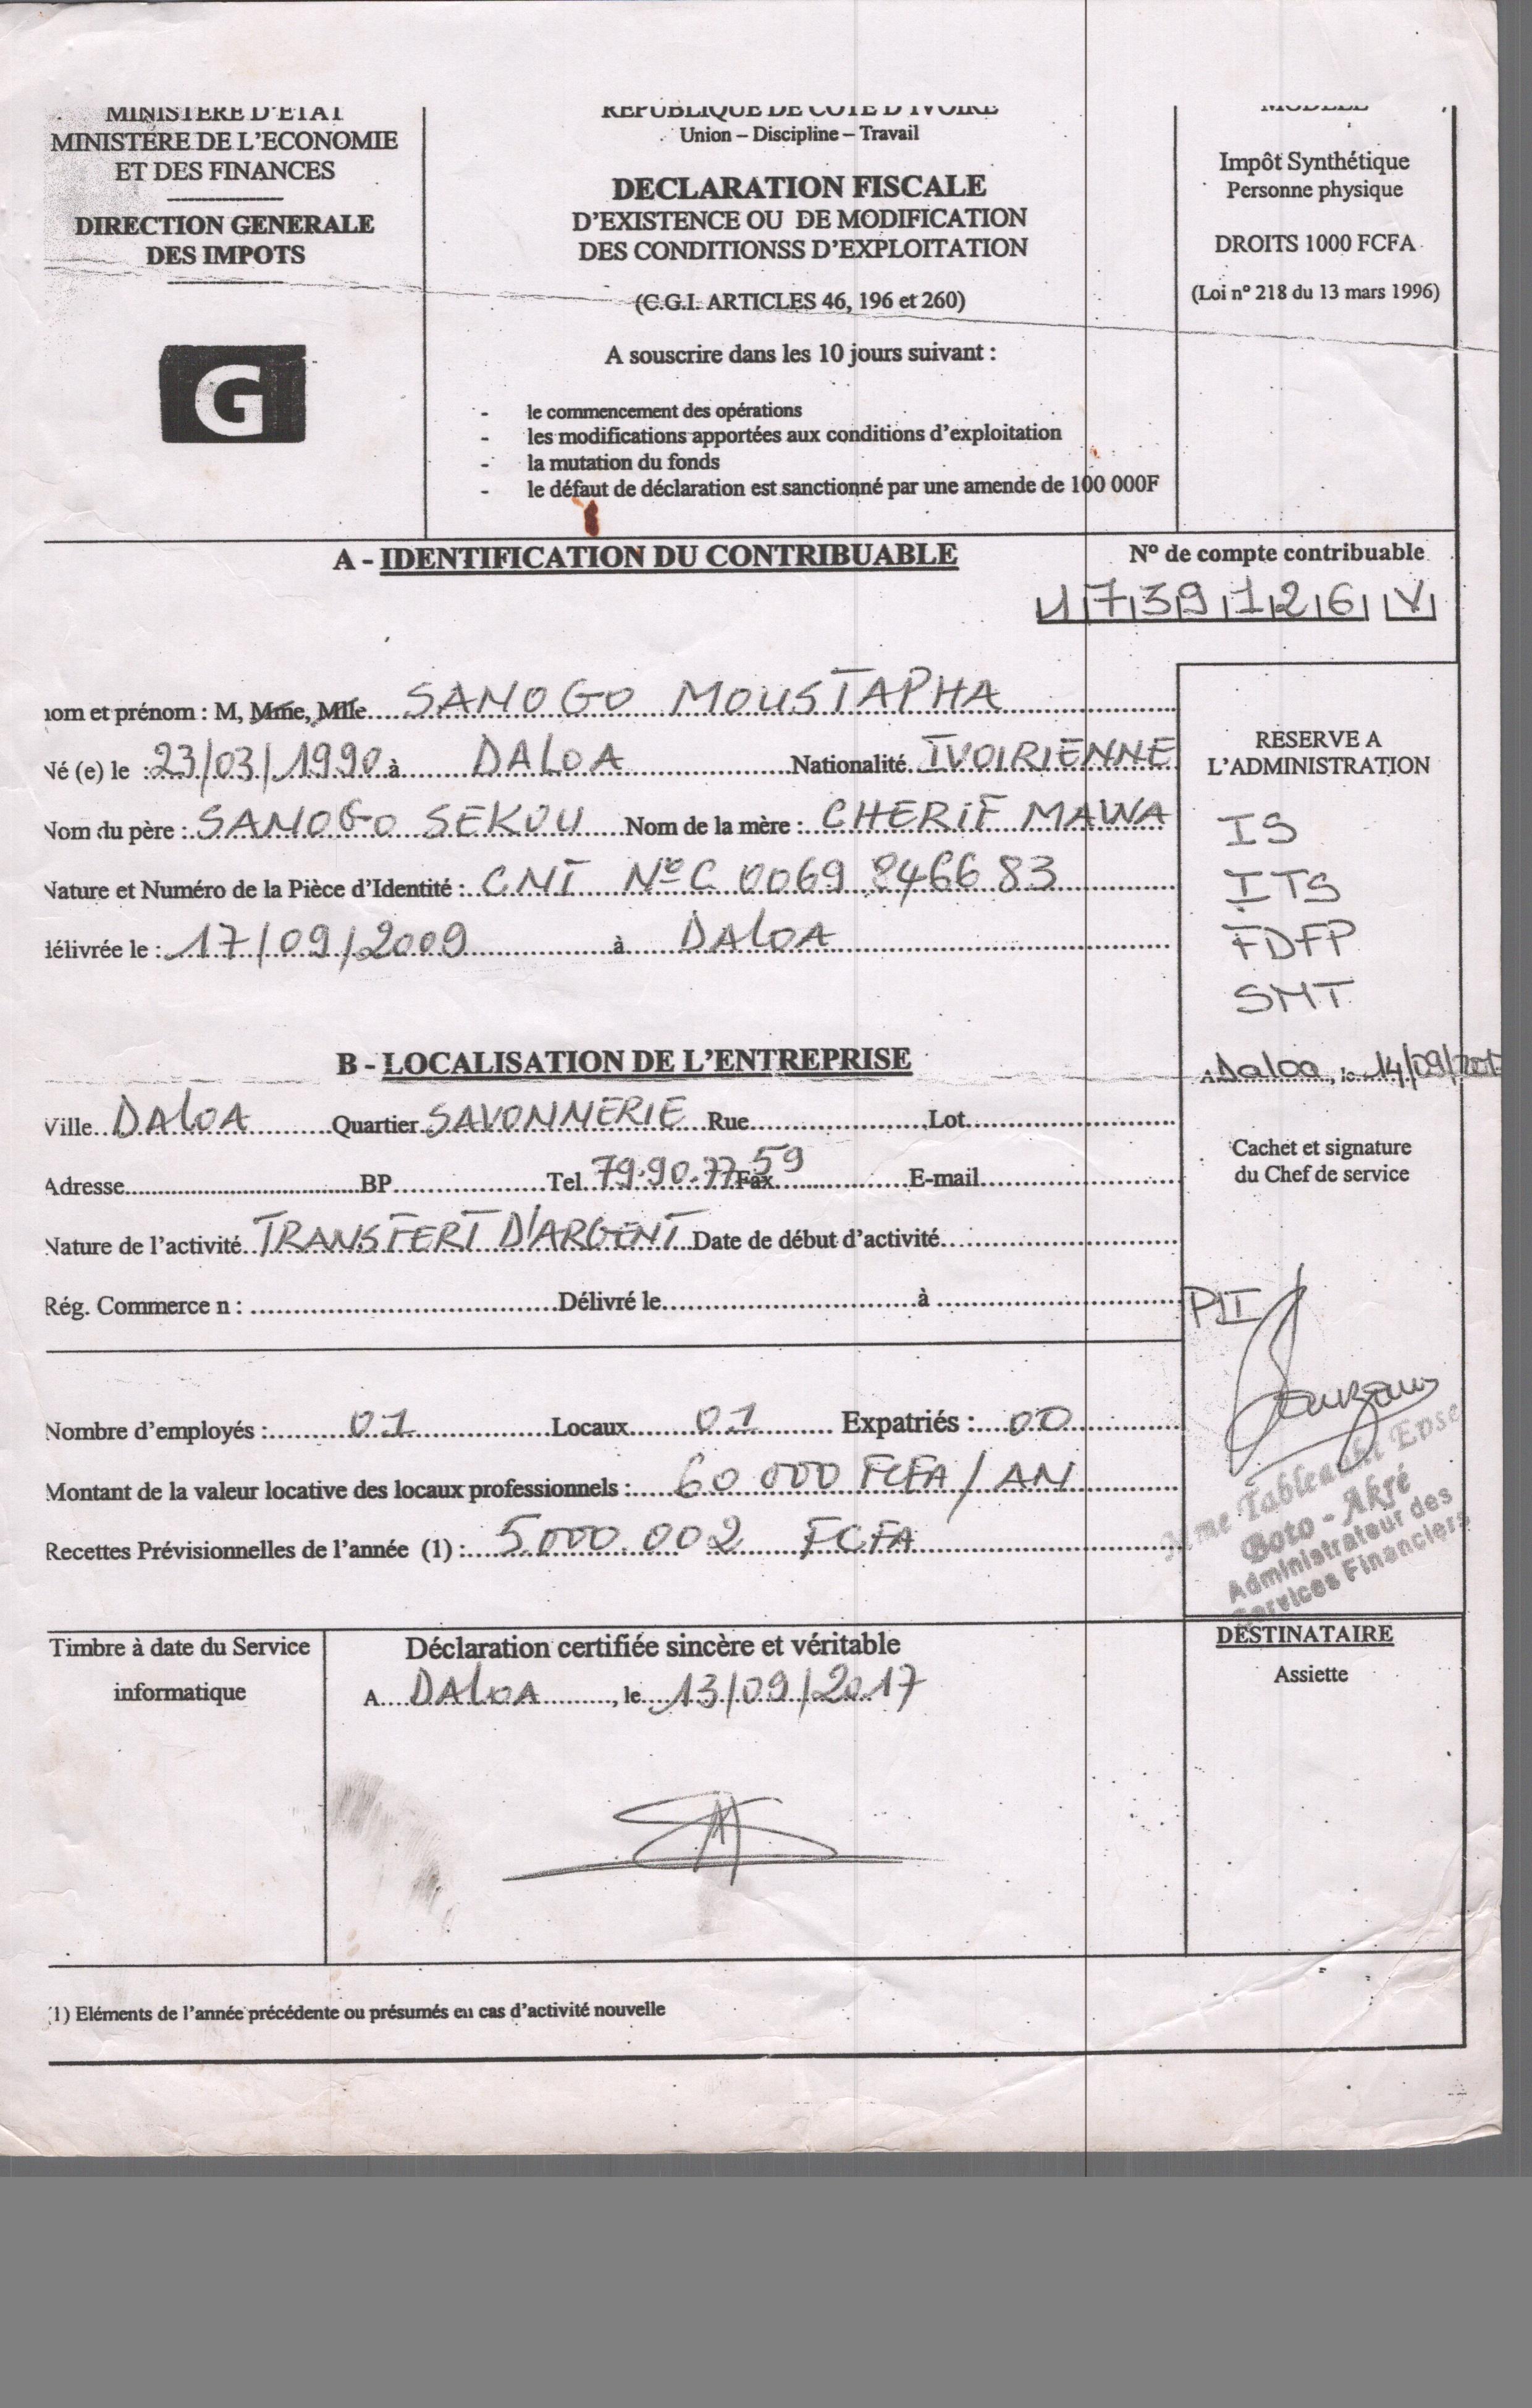 MINISTERE D'ETAT
MINISTERE DE L'ECONOMIE
ET DES FINANCES
DIRECTION GENERALE
DES IMPOTS
G
REPUBLIQUE DE COTE D'IVOIRE
Union – Discipline – Travail
DECLARATION FISCALE
D'EXISTENCE OU DE MODIFICATION
DES CONDITIONSS D'EXPLOITATION
(C.G.I. ARTICLES 46, 196 et 260)
A souscrire dans les 10 jours suivant :
- le commencement des opérations
- les modifications apportées aux conditions d'exploitation
- la mutation du fonds
- le défaut de déclaration est sanctionné par une amende de 100 000F
MODELE
Impôt Synthétique
Personne physique
DROITS 1000 FCFA
(Loi n° 218 du 13 mars 1996)
A - IDENTIFICATION DU CONTRIBUABLE
N° de compte contribuable
1739126 V
nom et prénom : M, Mme, Mlle SANOGO MOUSTAPHA
Né (e) le : 23/03/1990 à DALOA Nationalité IVOIRIENNE
Nom du père : SANOGO SEKOU Nom de la mère : CHERIF MAWA
Nature et Numéro de la Pièce d'Identité : CNI N° C 0069 8466 83
délivrée le : 17/09/2009 à DALOA
RESERVE A
L'ADMINISTRATION
IS
ITS
FDFP
SMT
A Daloa, le 14/09/201
Cachet et signature
du Chef de service
B - LOCALISATION DE L'ENTREPRISE
Ville DALOA Quartier SAVONNERIE Rue Lot
Adresse BP Tel 79.90.77.59 Fax E-mail
Nature de l'activité TRANSFERT D'ARGENT Date de début d'activité
Rég. Commerce n : Délivré le à
Nombre d'employés : 01 Locaux 01 Expatriés : 00
Montant de la valeur locative des locaux professionnels : 60 000 FCFA / AN
Recettes Prévisionnelles de l'année (1) : 5000.002 FCFA
Mme Epse
Boto - Akré
Administrateur des
Services Financiers
Timbre à date du Service
informatique
Déclaration certifiée sincère et véritable
A DALOA, le 13/09/2017
DESTINATAIRE
Assiette
(1) Eléments de l'année précédente ou présumés en cas d'activité nouvelle